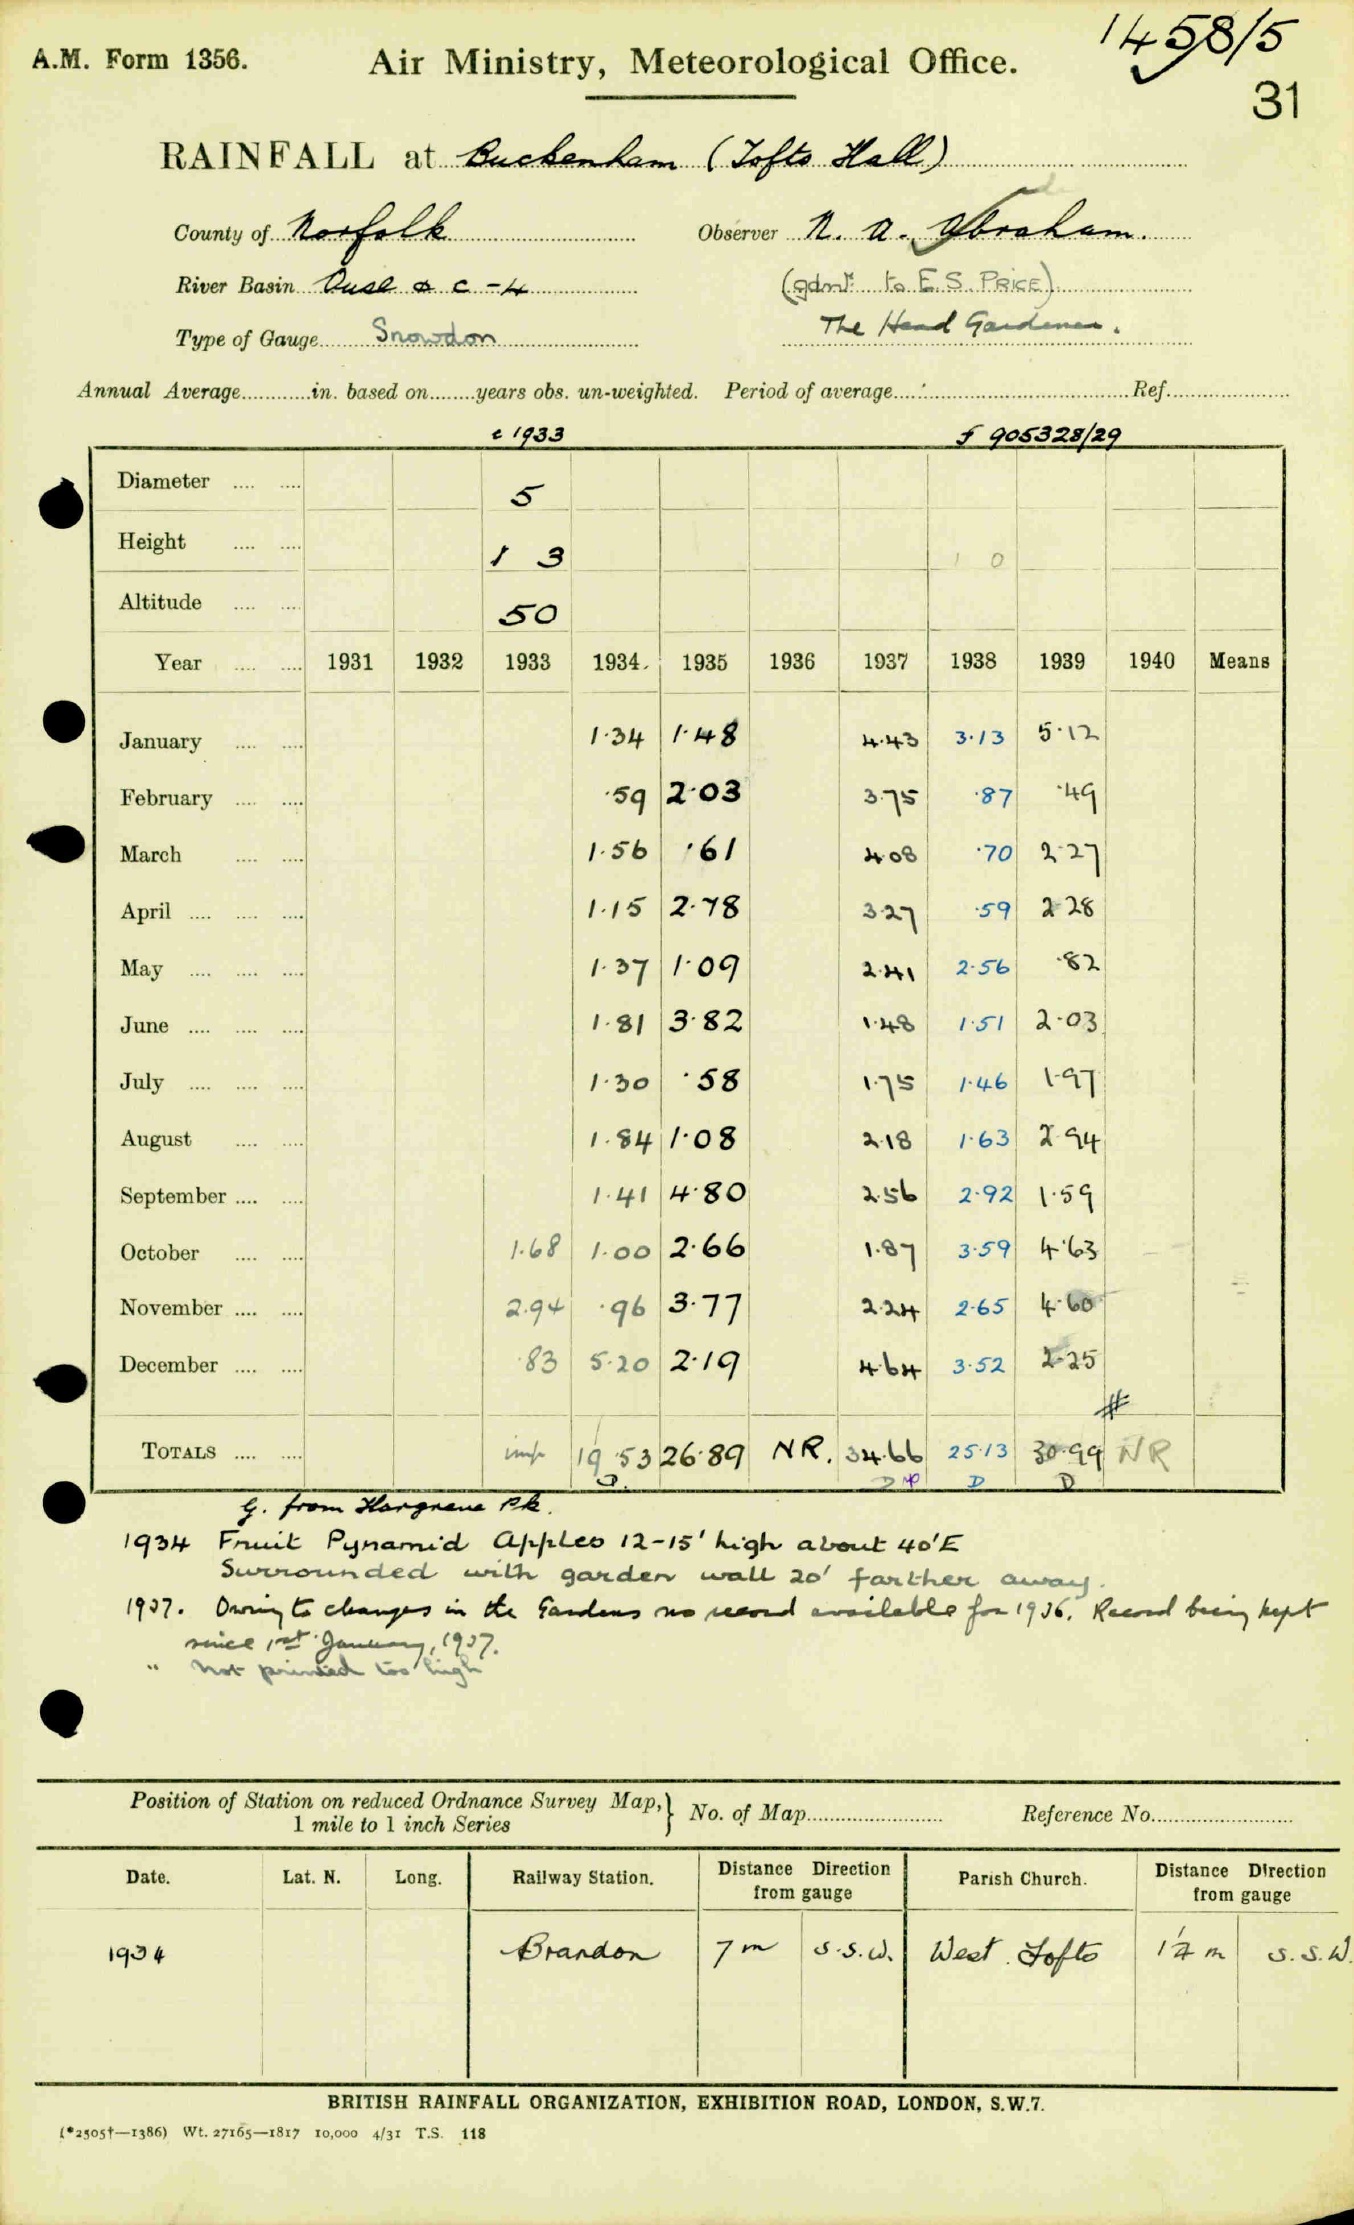 1458/5
A.M. Form 1356. Air Ministry, Meteorological Office.
31
RAINFALL at Buckenham (Tofts Hall)
County of Norfolk Observer N. A. Abraham.
River Basin Ouse & c - 4 (gdnr. to E.S. PRICE)
Type of Gauge Snowdon The Head Gardener.
Annual Average in. based on years obs. un-weighted. Period of average Ref.
1933 905328/29
Diameter 5
Height 1 3 1 0
Altitude 50
Year 1931 1932 1933 1934 1935 1936 1937 1938 1939 1940 Means
January 1.34 1.48 4.43 3.13 5.12
February .59 2.03 3.75 .87 .49
March 1.56 .61 4.08 .70 2.27
April 1.15 2.78 3.27 .59 2.28
May 1.37 1.09 2.41 2.56 .82
June 1.81 3.82 1.48 1.51 2.03
July 1.30 .58 1.75 1.46 1.97
August 1.84 1.08 2.18 1.63 2.94
September 1.41 4.80 2.56 2.92 1.59
October 1.68 1.00 2.66 1.87 3.59 4.63
November 2.94 .96 3.77 2.24 2.65 4.60
December .83 5.20 2.19 4.64 3.52 2.25
#
TOTALS imp 19.53 26.89 NR. 34.66 25.13 30.99 NR
D. D D D
G. from Hargreave Pk.
1934 Fruit Pyramid Apples 12-15' high about 40'E
Surrounded with garden wall 20' farther away.
1937. Owing to changes in the Gardens no record available for 1936. Record being kept
since 1st January, 1937.
" Not printed too high
Position of Station on reduced Ordnance Survey Map, } No. of Map Reference No.
1 mile to 1 inch Series
Date. Lat. N. Long. Railway Station. Distance Direction from gauge Parish Church. Distance Direction from gauge
1934 Brandon 7 m S.S.W. West Tofts 1¼ m S.S.W.
BRITISH RAINFALL ORGANIZATION, EXHIBITION ROAD, LONDON, S.W.7.
(*2505†—1386) Wt. 27165—1817 10,000 4/31 T.S. 118